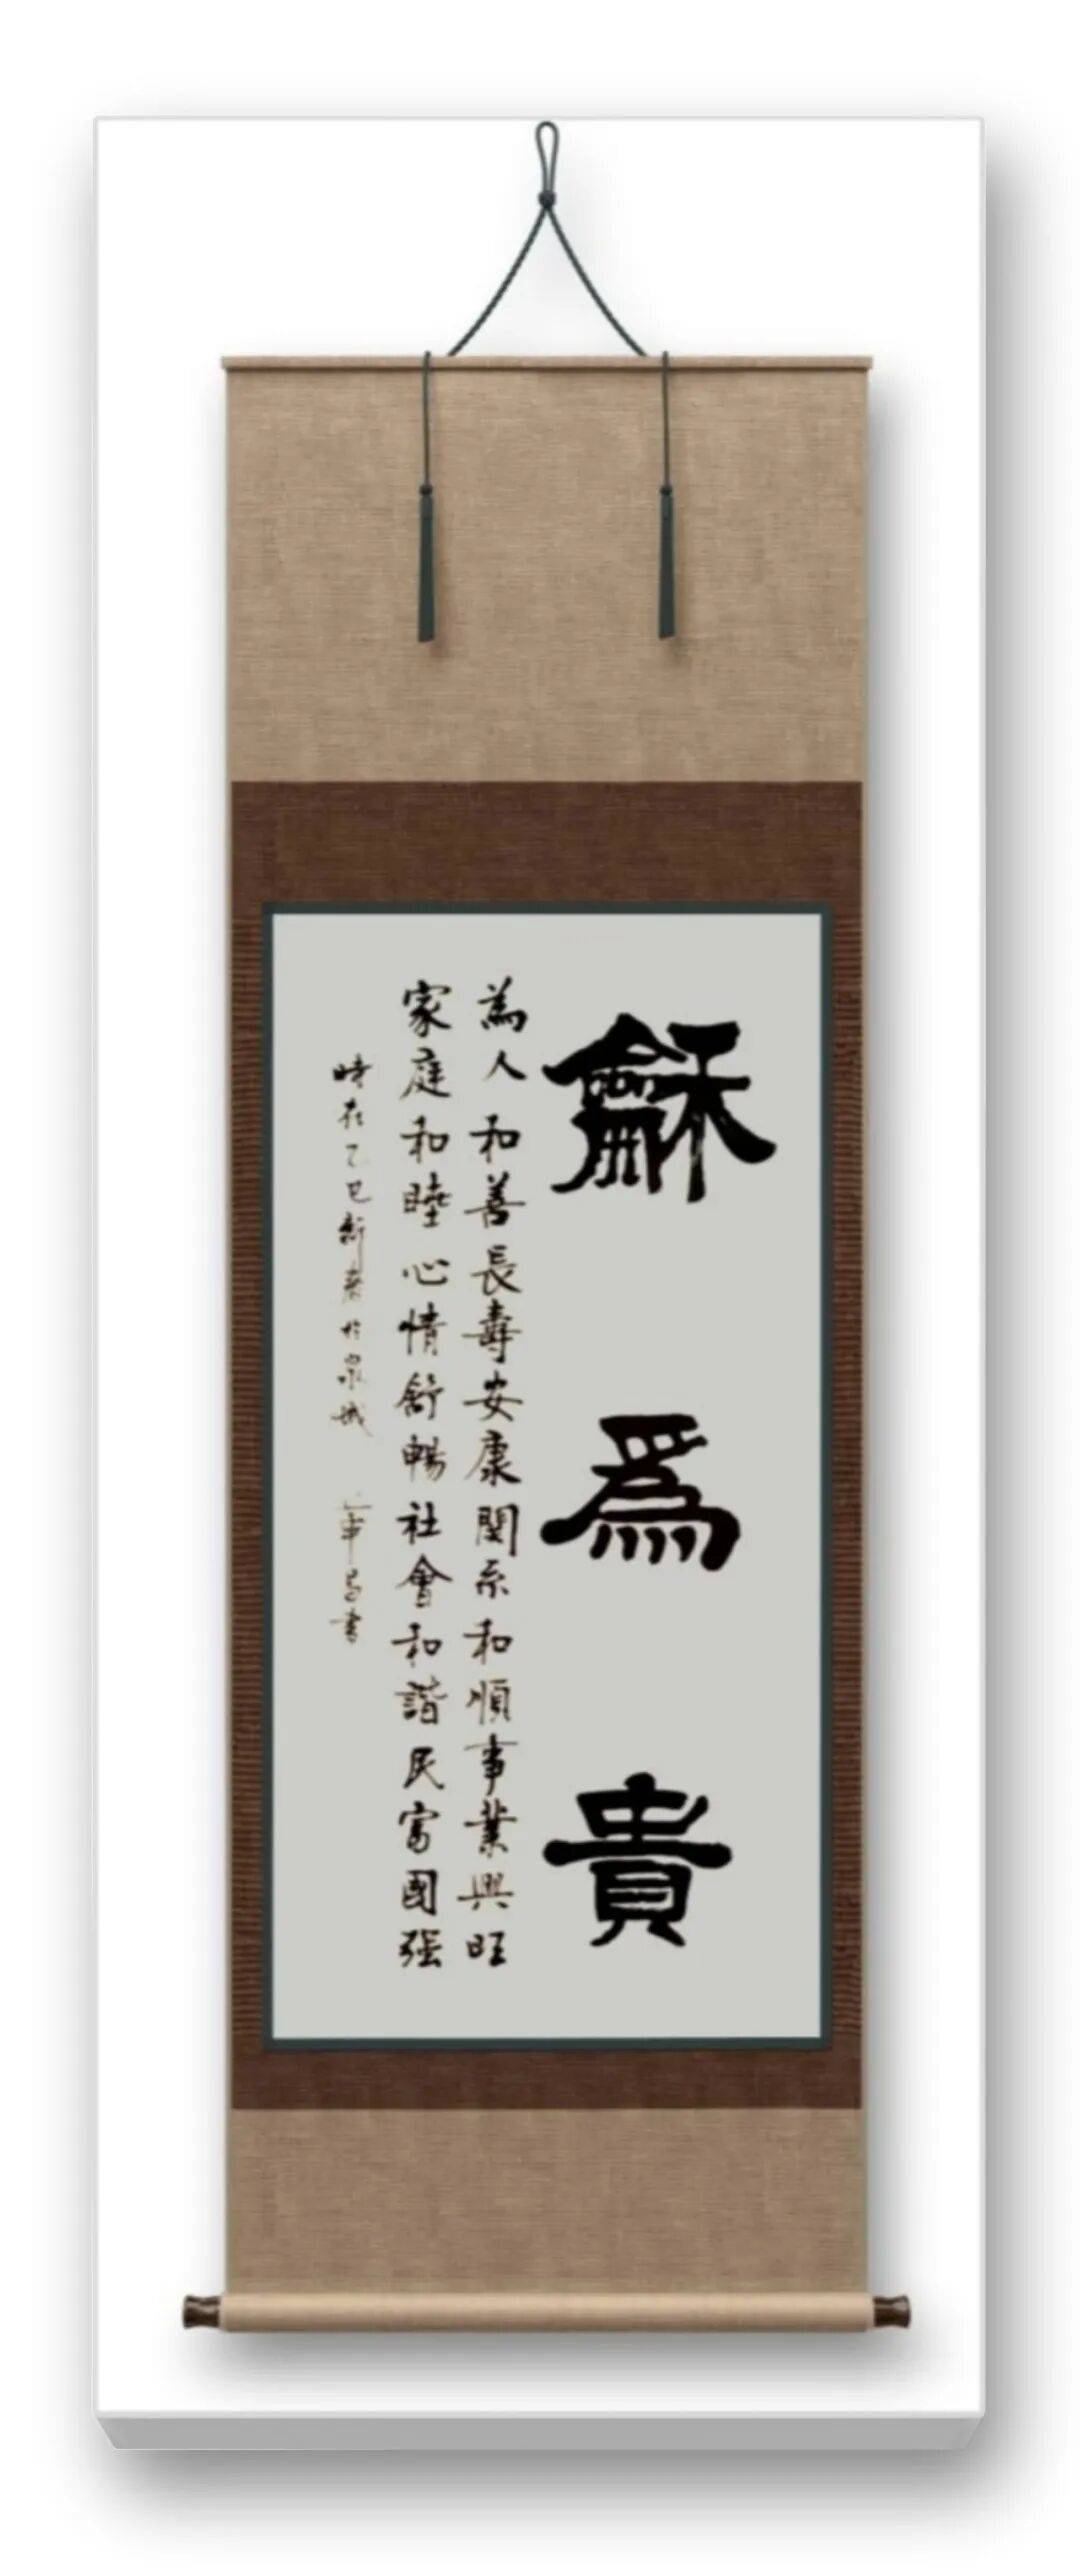 龢為貴
為人和善長壽安康関系和順事業興旺
家庭和睦心情舒暢社會和諧民富國强
時在乙巳新春於泉城
昌書